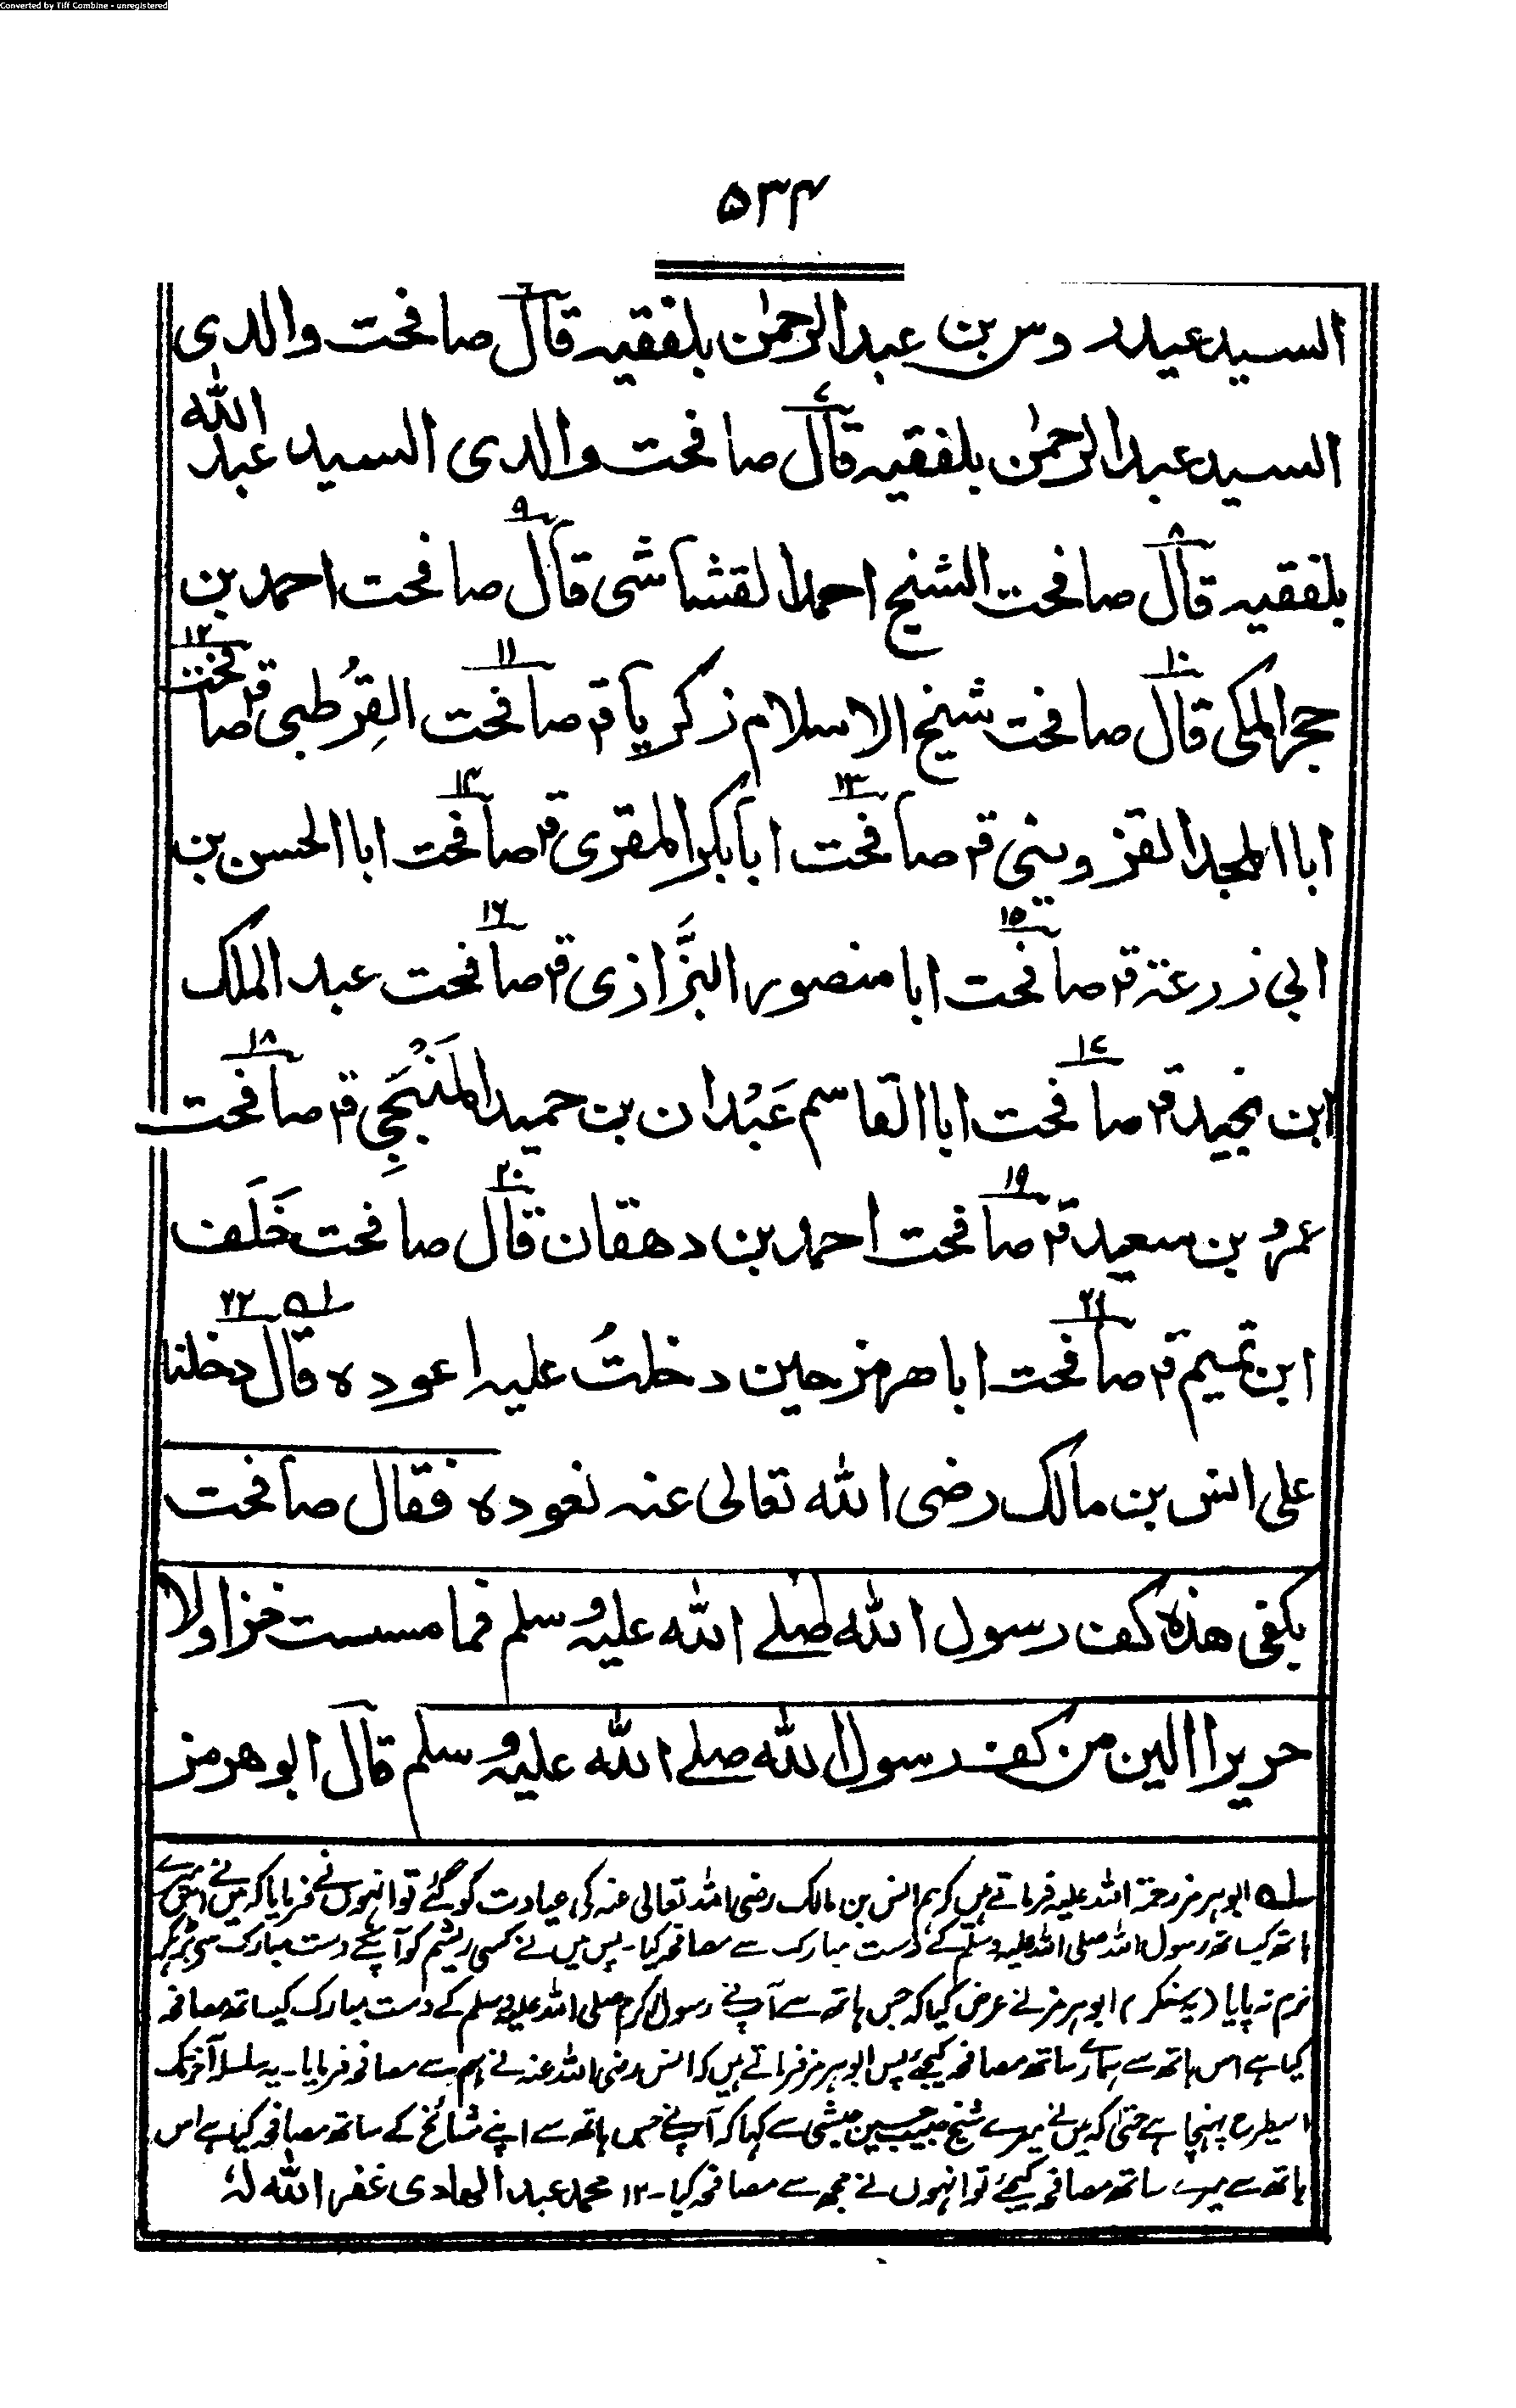 Converted by Tiff Combine - unregistered
۵۳۴
السید عیدروس بن عبد الرحمٰن بلفقیہ قال صافحت والدی
السید عبد الرحمٰن بلفقیہ قال صافحت والدی السید عبد اللہ
بلفقیہ قال صافحت الشیخ احمد القشاشی قال صافحت احمد بن
حجر المکی قال صافحت شیخ الاسلام زکریا قر صافحت القِرُطبی قر صافحت
ابا المجد القزوینی قر صافحت ابابکر المقری قر صافحت ابا الحسن بن
ابی زرعة قر صافحت ابا منصور البزَّازی قر صافحت عبد الملک
ابن نجید قر صافحت ابا القاسم عَبْدان بن حمید المَنْبَجِی قر صافحت
عمرو بن سعید قر صافحت احمد بن دھقان قال صافحت خَلَف
ابن تمیم قر صافحت ابا ھرمز حین دخلتُ علیہ اعودہ قال دخلنا
علی انس بن مالک رضی اللہ تعالی عنہ نعودہ فقال صافحت
بکفی ھذہ کف رسول اللہ صلے اللہ علیہ وسلم فما مسست خزا ولا
حریرا الین من کف رسول اللہ صلے اللہ علیہ وسلم قال ابو ھرمز
لہ ابو ہرمز رحمۃ اللہ علیہ فرماتے ہیں کہ ہم انس بن مالک رضی اللہ تعالی عنہ کی عیادت کو گئے تو انہوں نے فرمایا کہ میں نے اس میرے
ہاتھ کیساتھ رسول اللہ صلی اللہ علیہ وسلم کے دست مبارک سے مصافحہ کیا۔ پس میں نے کسی ریشم کو آپکے دست مبارک سے بڑھکر
نرم نہ پایا (یہ سنکر) ابو ہرمز نے عرض کیا کہ جس ہاتھ سے آپنے رسول اکرم صلی اللہ علیہ وسلم کے دست مبارک کیساتھ مصافحہ
کیا ہے اس ہاتھ سے ہمارے ساتھ مصافحہ کیجئے پس ابو ہرمز فرماتے ہیں کہ انس رضی اللہ عنہ نے ہم سے مصافحہ فرمایا۔ یہ سلسلہ آخر تک
اسیطرح پہنچا ہے حتی کہ میں نے میرے شیخ حبیب حسین حبشی سے کہا کہ آپنے جس ہاتھ سے اپنے مشائخ کے ساتھ مصافحہ کیا ہے اس
ہاتھ سے میرے ساتھ مصافحہ کیجئے تو انہوں نے مجھ سے مصافحہ کیا۔ ۱۲ محمد عبد الھادی غفر اللہ لہٗ